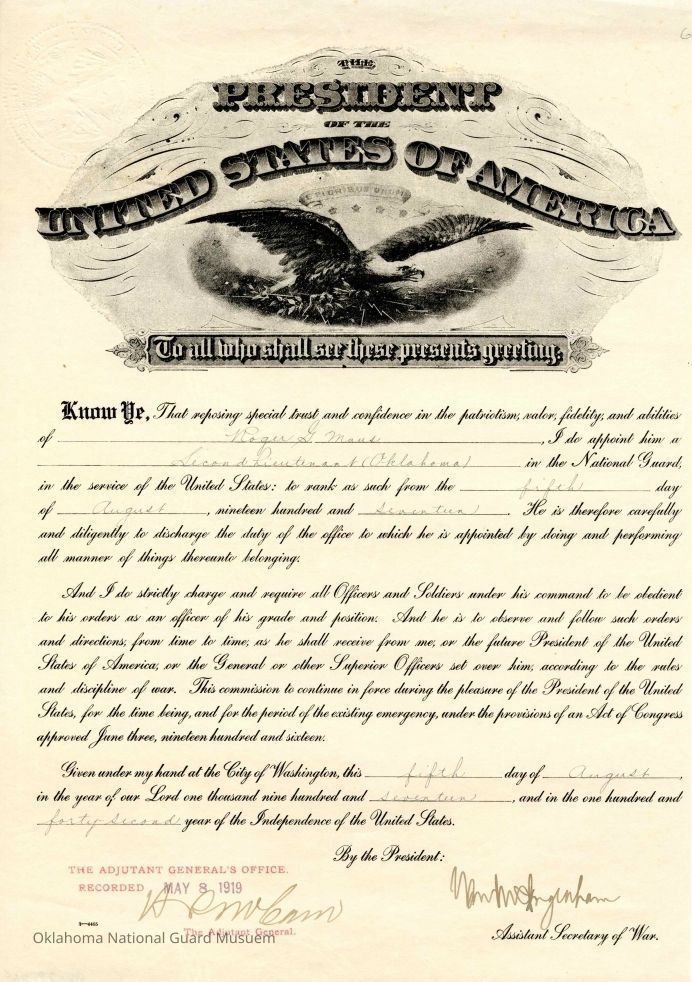 THE
PRESIDENT
OF THE
UNITED STATES OF AMERICA
E PLURIBUS UNUM
To all who shall see these presents greeting:
Know Ye, That reposing special trust and confidence in the patriotism, valor, fidelity, and abilities
of Roger G. Maus, I do appoint him a
Second Lieutenant (Oklahoma) in the National Guard,
in the service of the United States: to rank as such from the fifth day
of August, nineteen hundred and seventeen. He is therefore carefully
and diligently to discharge the duty of the office to which he is appointed by doing and performing
all manner of things thereunto belonging.
And I do strictly charge and require all Officers and Soldiers under his command to be obedient
to his orders as an officer of his grade and position. And he is to observe and follow such orders
and directions, from time to time, as he shall receive from me, or the future President of the United
States of America, or the General or other Superior Officers set over him, according to the rules
and discipline of war. This commission to continue in force during the pleasure of the President of the United
States, for the time being, and for the period of the existing emergency, under the provisions of an Act of Congress
approved June three, nineteen hundred and sixteen.
Given under my hand at the City of Washington, this fifth day of August,
in the year of our Lord one thousand nine hundred and seventeen, and in the one hundred and
forty second year of the Independence of the United States.
By the President:
THE ADJUTANT GENERAL'S OFFICE.
RECORDED MAY 8 1919
The Adjutant General.
Wm M Ingraham
Assistant Secretary of War.
3—4465
Oklahoma National Guard Musuem